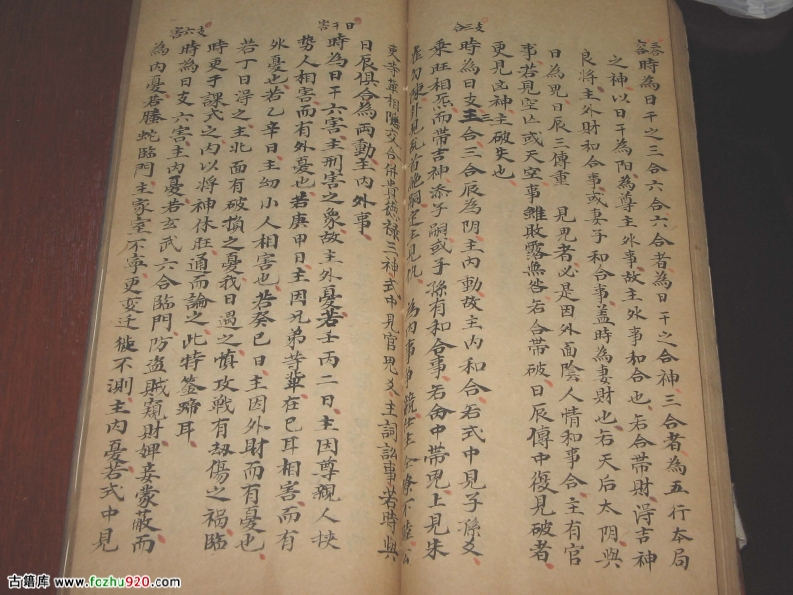 三六合
時為日干之三合六合六合者為日干之合神三合者為五行本局
之神以日干為陽為尊主外事故主外事和合也若合帶財得吉神
良將主外財和合事或妻子和合事蓋時為妻財也若天后太陰與
日為鬼日辰三傳重見鬼者必是因外面陰人情和事合主有官
事若見空亡或天空事雖敗露無咎若合帶破日辰傳中復見破者
更見凶神主破失也
支三合
時為日支三合三合辰為阴主内動故主内和合若式中見子孫爻
乗旺相炁而帶吉神添子嗣或子孫有和合事若合中帶鬼上見朱
雀勾陳
更等輩相隱交合併貴德禄三神式中見官鬼爻主詞訟事若時與
日辰俱合為両動主内外事
日干害
時為日干六害主刑害之象故主外憂若壬丙二日主因尊親人挾
勢人相害而有外憂也若庚甲日主因兄弟等輩在已耳相害而有
外憂也若乙辛日主幼小人相害也若癸巳日主因外財而有憂也
若丁日得之主北面有破損之憂我日遇之慎攻戰有刼傷之禍臨
時更于課式之内以將神休旺通而論之此特筌蹄耳
支六害
時為日支六害主内憂若玄武六合臨門防盗賊窺財婢妾蒙蔽而
為内憂若騰蛇臨門主家室不寧更変迁徙不測主内憂若式中見
古籍库 www.fczhu920.com